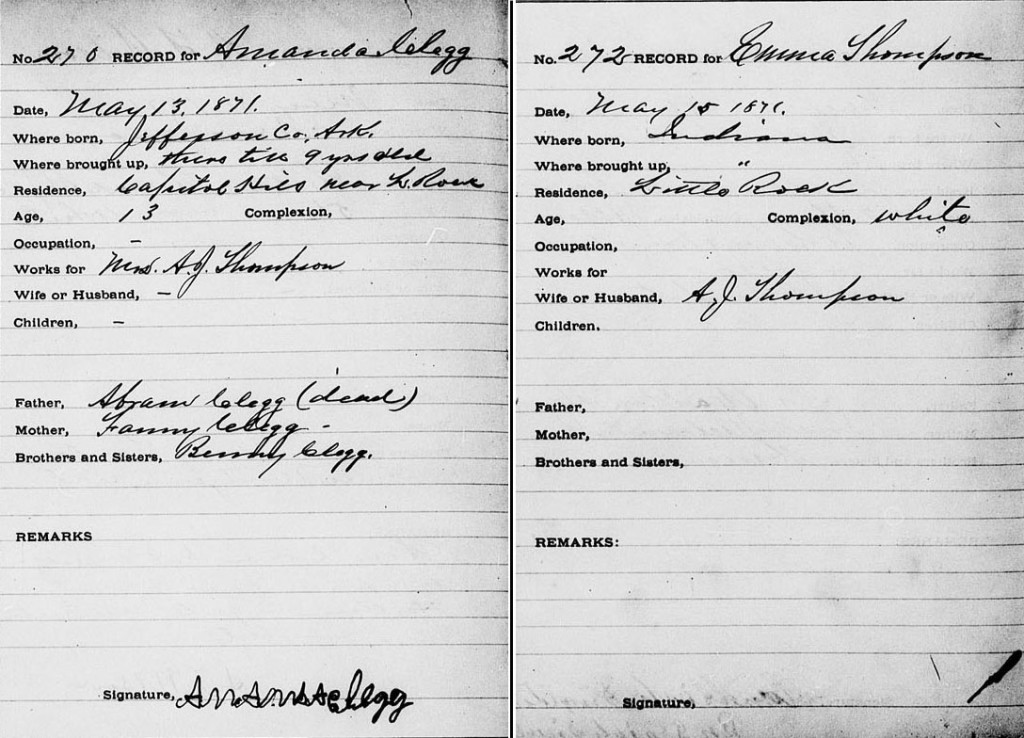 No. 270 RECORD for Amanda Clegg
Date, May 13, 1871.
Where born, Jefferson Co, Ark.
Where brought up, there till 9 yrs old
Residence, Capitol Hill near L. Rock
Age, 13 Complexion,
Occupation, –
Works for Mrs. A. J. Thompson
Wife or Husband, –
Children, –
Father, Abram Clegg (dead)
Mother, Fanny Clegg –
Brothers and Sisters, Benny Clegg.
REMARKS
Signature, Clegg
No. 272 RECORD for Emma Thompson
Date, May 15 1871.
Where born, Indiana
Where brought up, "
Residence, Little Rock
Age, Complexion, white
Occupation,
Works for
Wife or Husband, A. J. Thompson
Children.
Father,
Mother,
Brothers and Sisters,
REMARKS:
Signature,